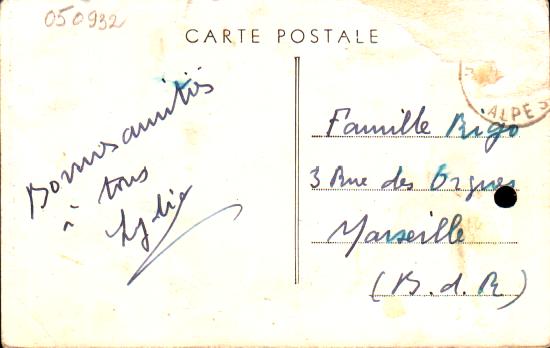 050932
CARTE POSTALE
Bonnes amitiés
à tous
Lydie
ALPES
Famille Rigo
3 Rue des Orgues
Marseille
(B. d. R)